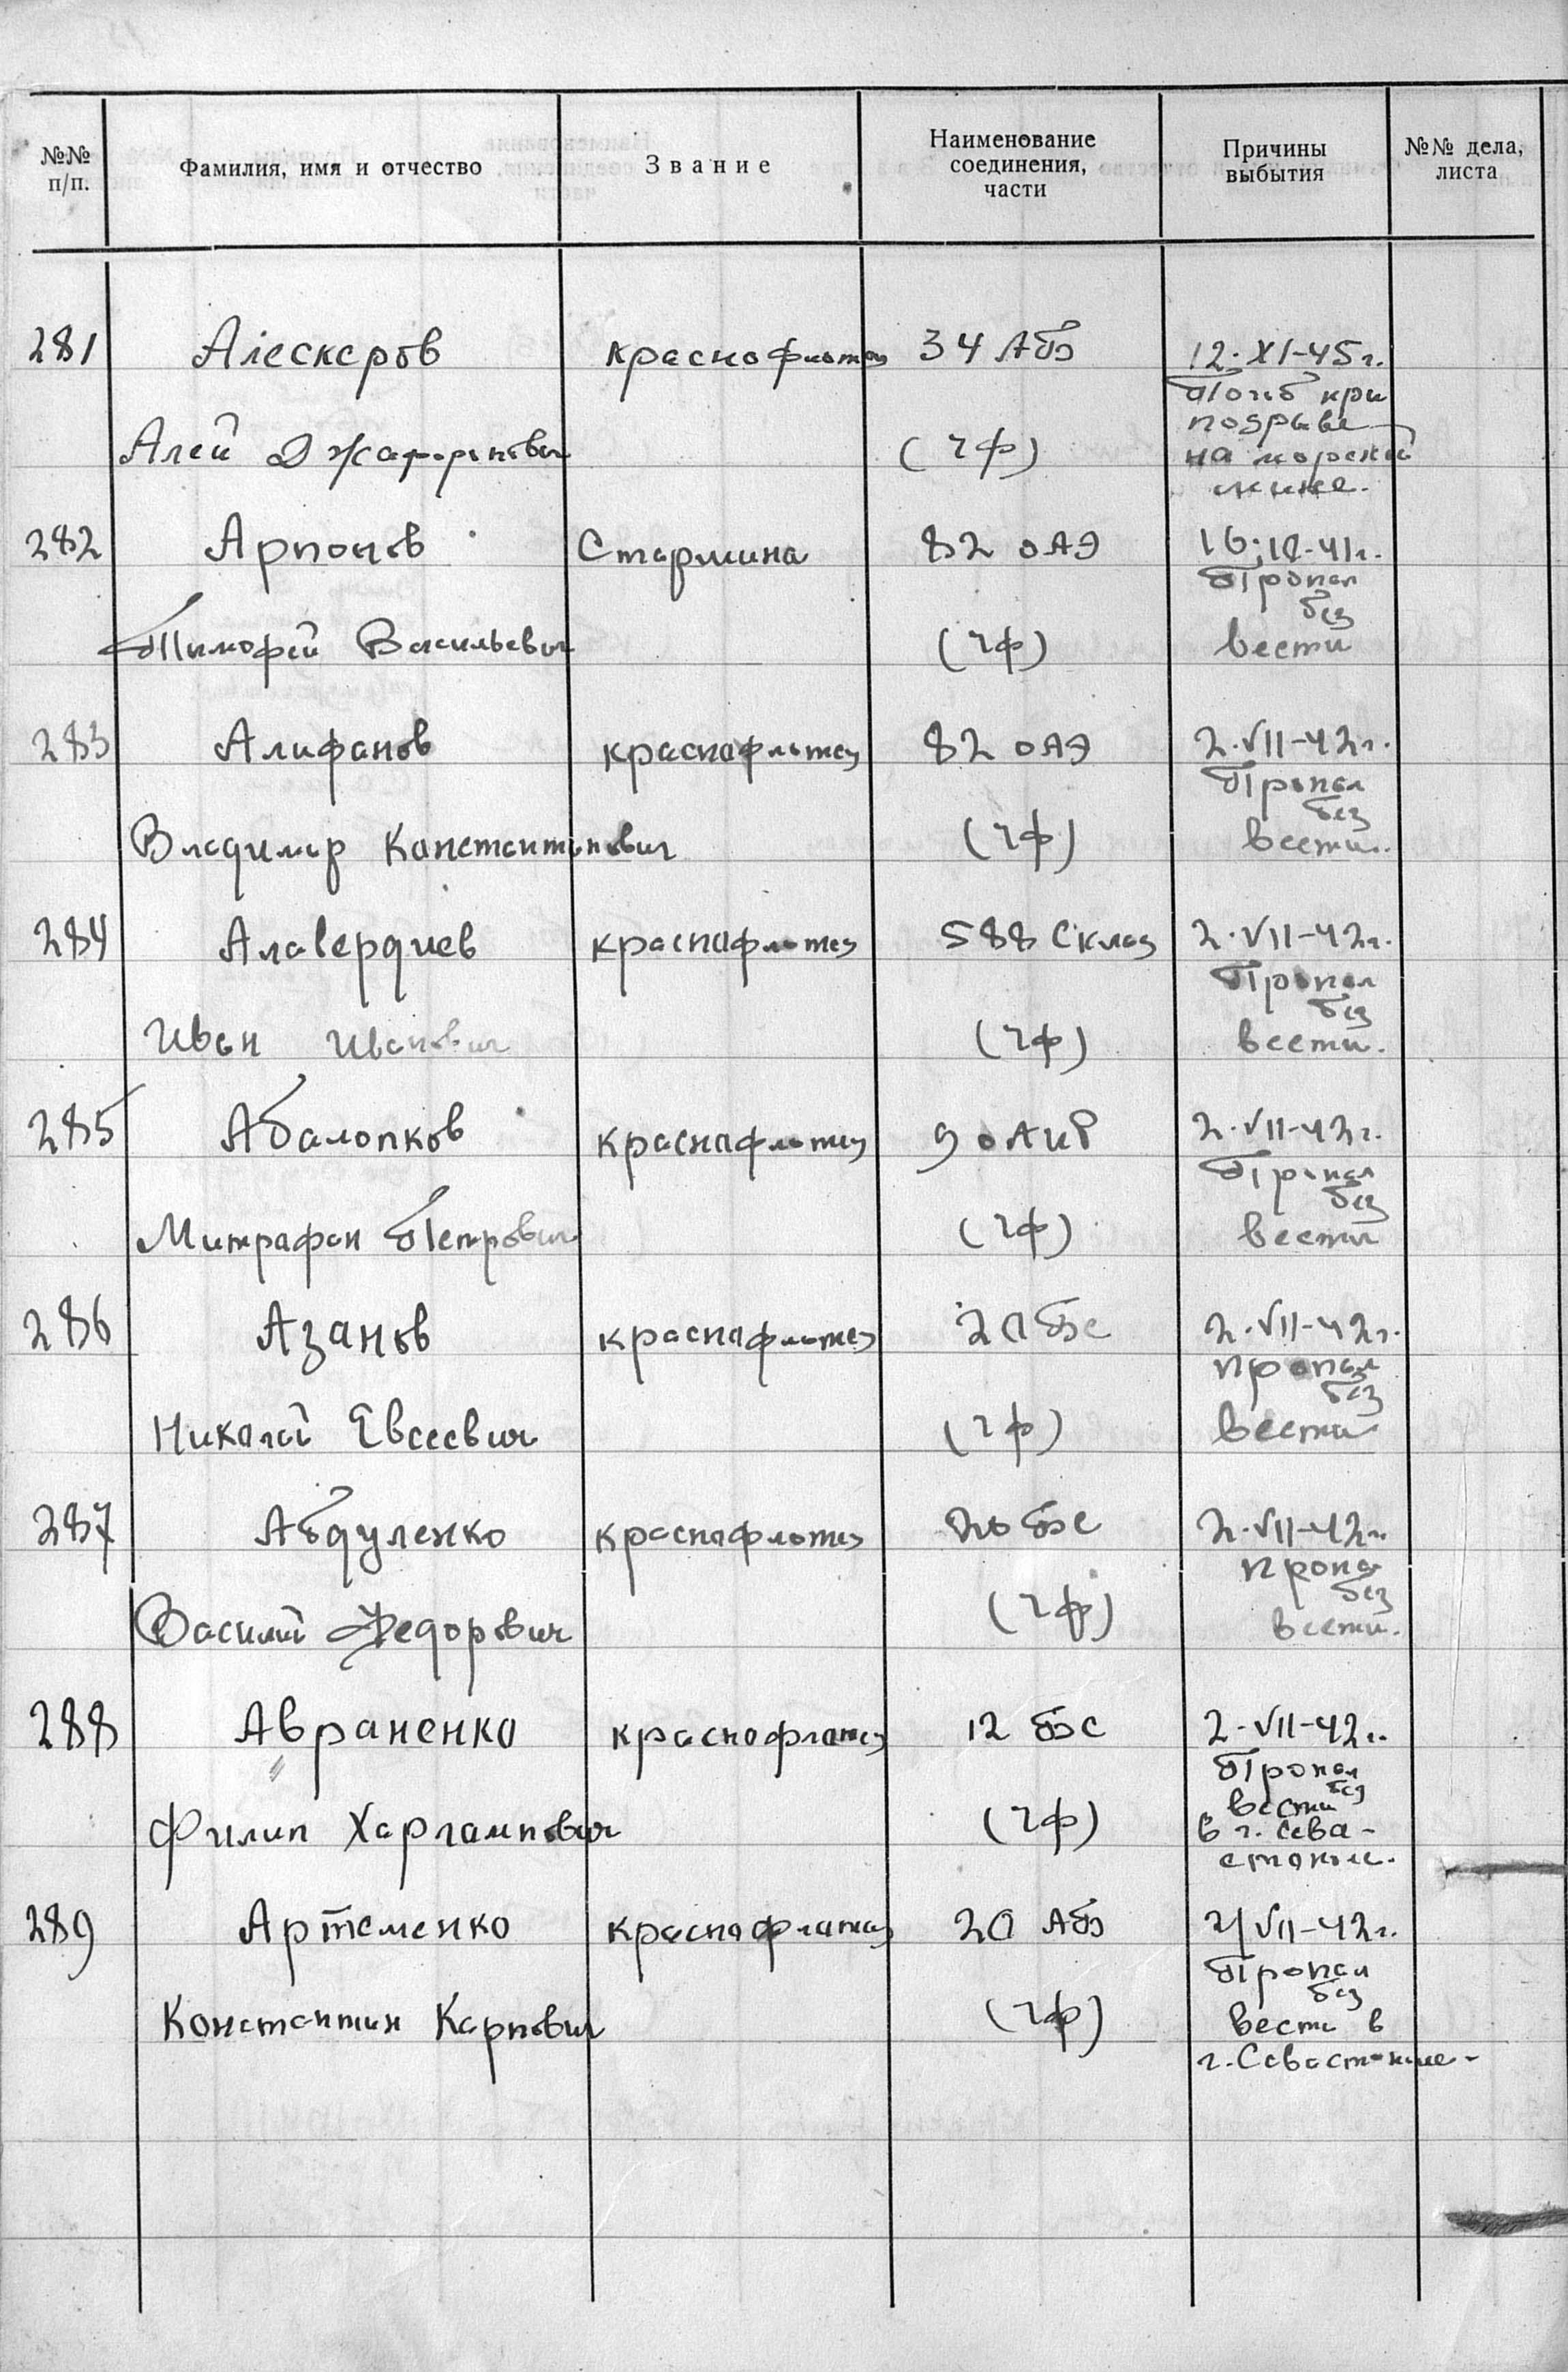 №№ п/п. Фамилия, имя и отчество Звание Наименование соединения, части Причины выбытия №№ дела, листа
281 Алескеров краснофлотец 34 АБ 12.XI-45г.
Погиб при
подрыве
Алей (ЧФ) на морской
мине.
282 Арпонов Старшина 82 оАЭ
Пропал
без
Тимофей Васильевич (ЧФ) вести
283 Алифанов краснофлотец 82 оАЭ 2.VII-42г.
Пропал
без
Владимир Константинович (ЧФ) вести.
284 Алавердиев краснофлотец 588 Склад 2.VII-42г.
Пропал
без
Иван Иванович (ЧФ) вести.
285 Абалопков краснофлотец 2.VII-42г.
Пропал
без
Митрафан Петрович (ЧФ) вести
286 Азанов краснофлотец 20 бэс 2.VII-42г.
пропал
без
Николай Евсеевич (ЧФ) вести
287 Абдуленко краснофлотец 20 бэс 2.VII-42г.
пропал
без
Василий Федорович (ЧФ) вести.
288 Авраненко краснофлотец 12 бэс 2-VII-42г.
Пропал
без
вести
Филип Харлампович (ЧФ) в г. Сева-
стополе.
289 Артеменко краснофлотец 20 АБ VII-42г.
Пропал
без
Константин Карпович (ЧФ) вести в
г. Севастополе-